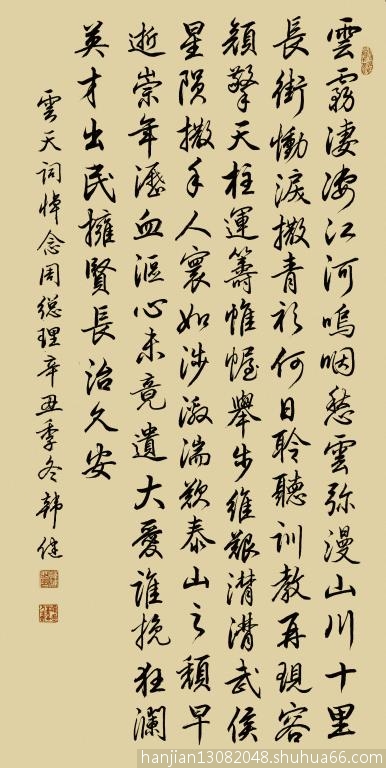 雲霧淒淒江河嗚咽愁雲弥漫山川十里
長街慟淚撒青衫何日聆聽訓教再現容
顏擎天柱運籌帷幄舉步維艱潸潸武侯
星隕撒手人寰如涉激湍歎泰山之頹早
逝崇年瀝血漚心未竟遺大愛誰挽狂瀾
英才出民擁賢長治久安
雲天詞悼念周總理辛丑季冬韓健
hanjian13082048.shuhua66.com